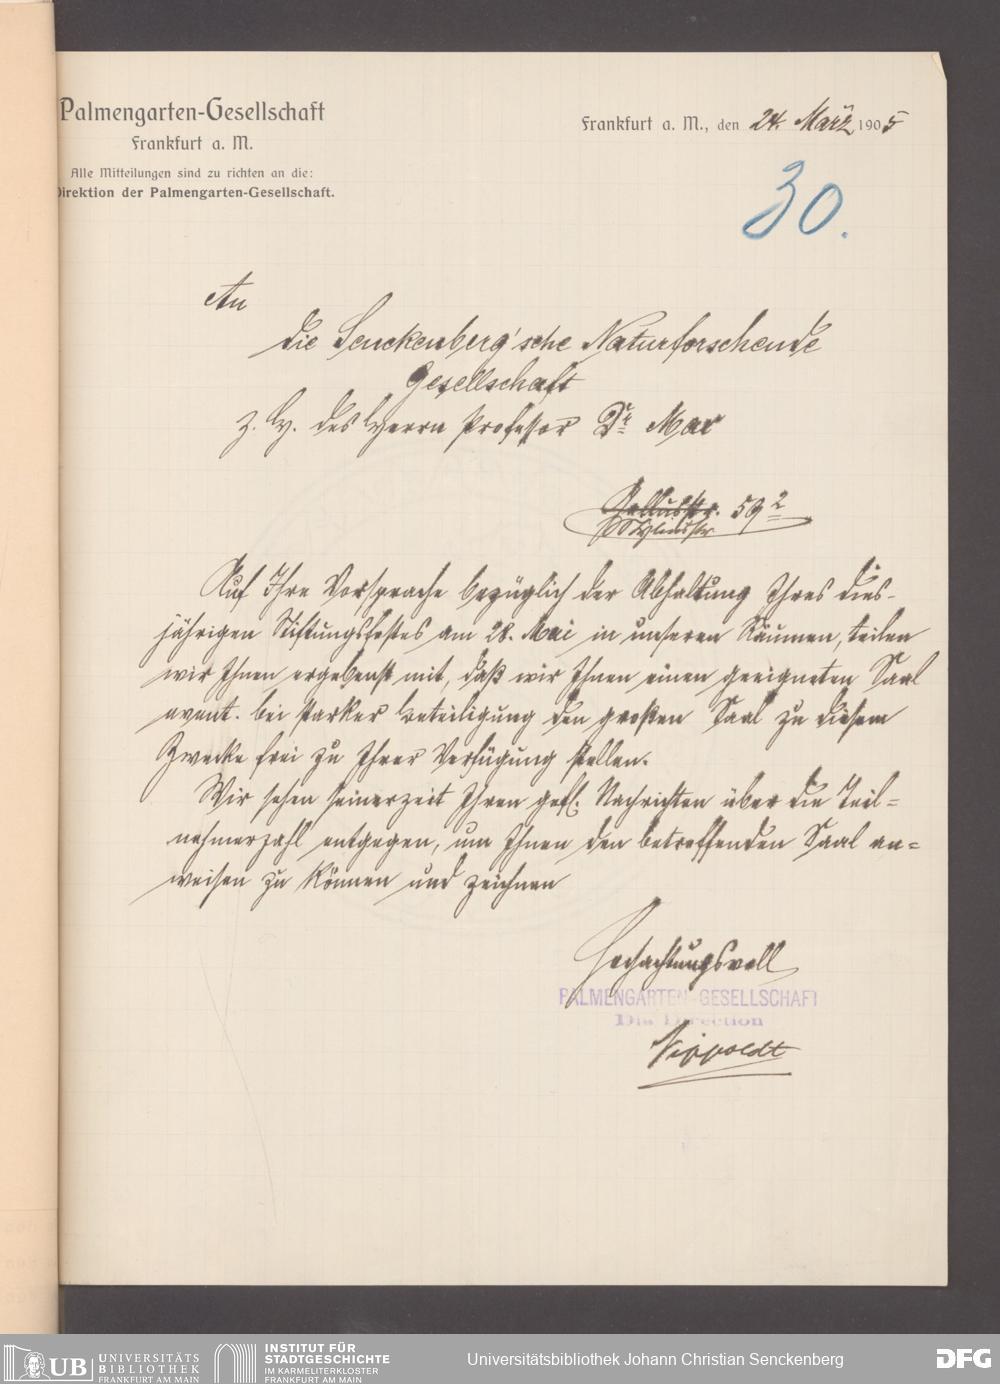 Palmengarten-Gesellschaft
Frankfurt a. M.
Alle Mitteilungen sind zu richten an die:
Direktion der Palmengarten-Gesellschaft.
Frankfurt a. M., den 24. März 1905
30.
An
die Senckenberg'sche Naturforschende
Gesellschaft
z. H. des Herrn Professor Dr
Gallusstr. 59 2
Auf Ihre Vorsprache bezüglich der Abhaltung Ihres dies-
jährigen Stiftungsfestes am 28. Mai in unseren Räumen, teilen
wir Ihnen ergebenst mit, daß wir Ihnen einen geeigneten Saal
event. bei starker Beteiligung den großen Saal zu diesem
Zwecke frei zu Ihrer Verfügung stellen.
Wir sehen seinerzeit Ihren gefl. Nachrichten über die Teil=
nehmerzahl entgegen, um Ihnen den betreffenden Saal an=
weisen zu können und zeichnen
Hochachtungsvoll
PALMENGARTEN-GESELLSCHAFT
Die Direction
UB UNIVERSITÄTS
BIBLIOTHEK
FRANKFURT AM MAIN
INSTITUT FÜR
STADTGESCHICHTE
IM KARMELITERKLOSTER
FRANKFURT AM MAIN
Universitätsbibliothek Johann Christian Senckenberg
DFG